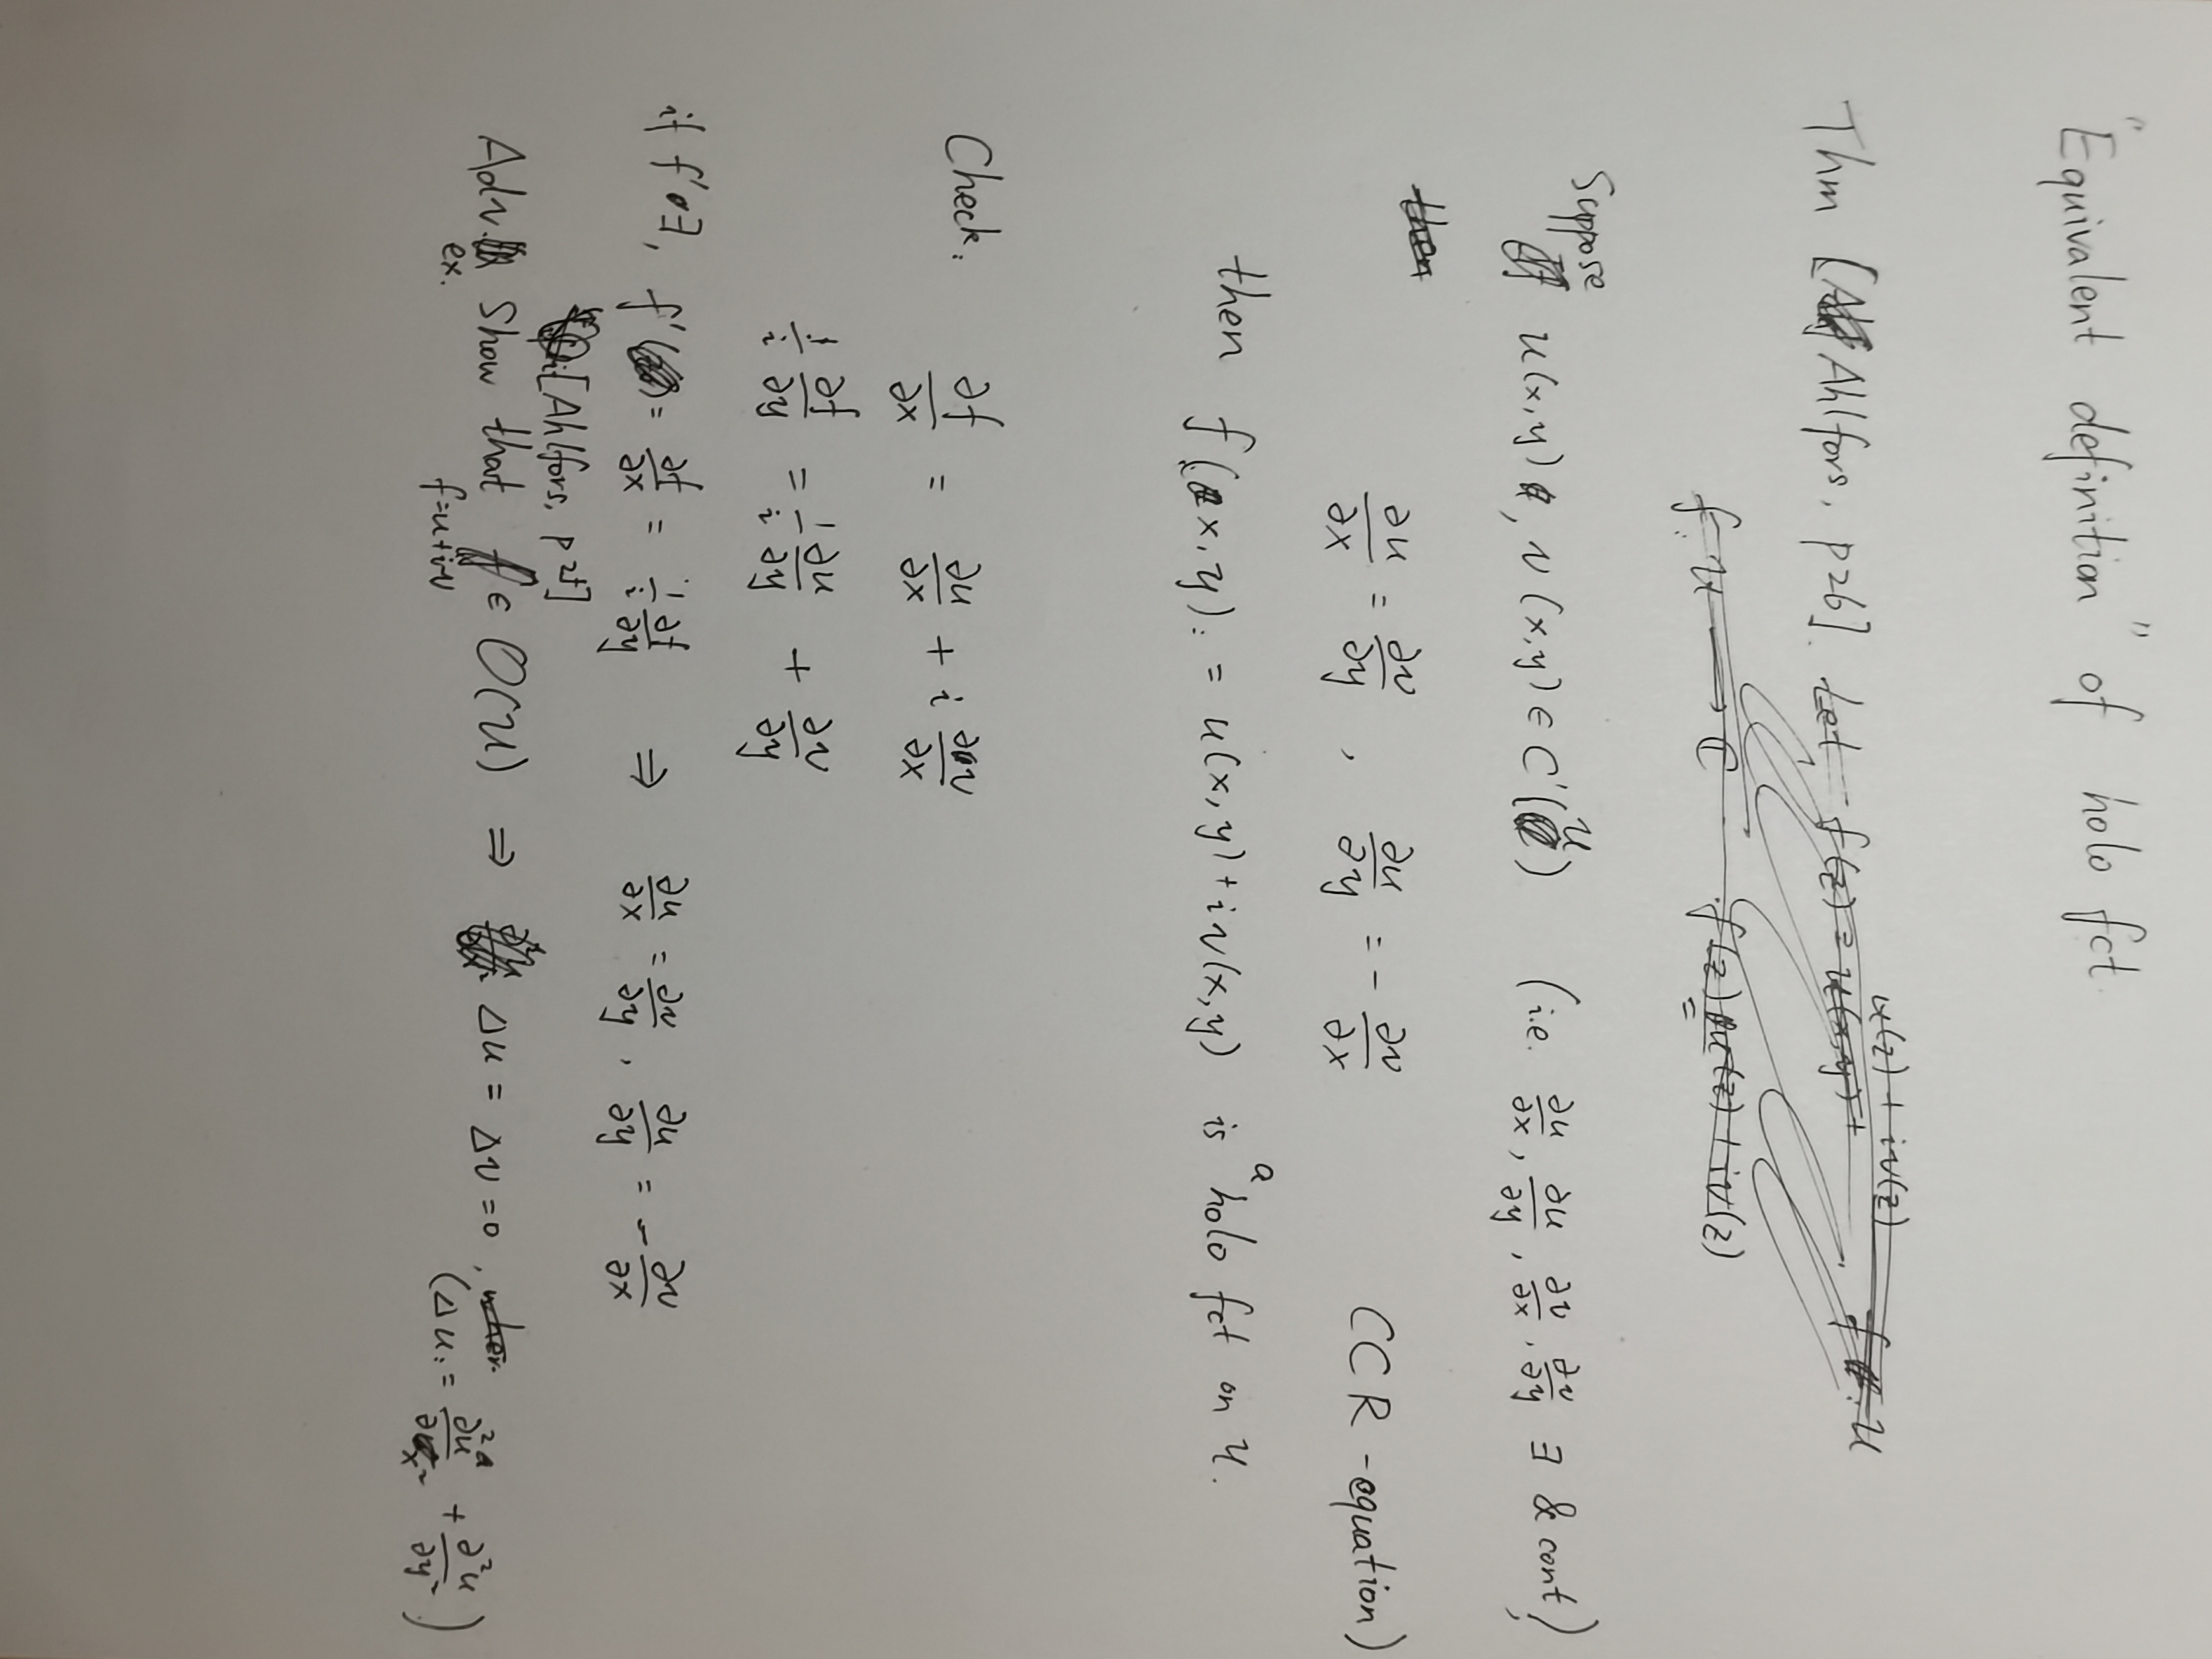 "Equivalent definition" of holo fct
Thm [Ahlfors, p26].
Suppose u(x,y), v(x,y) ∈ C'(U) (i.e. ∂u/∂x, ∂u/∂y, ∂v/∂x, ∂v/∂y ∃ & cont)
∂u/∂x = ∂v/∂y , ∂u/∂y = - ∂v/∂x (CR-equation)
then f(x,y) := u(x,y) + iv(x,y) is a holo fct on U.
Check: ∂f/∂x = ∂u/∂x + i ∂v/∂x
1/i ∂f/∂y = 1/i ∂u/∂y + ∂v/∂y
if f' ∃, f' = ∂f/∂x = 1/i ∂f/∂y ⇒ ∂u/∂x = ∂v/∂y , ∂u/∂y = - ∂v/∂x
[Ahlfors,
Adv. ex. Show that f ∈ O(U) ⇒ Δu = Δv = 0 , (Δu := ∂²u/∂x² + ∂²u/∂y²)
f=u+iv